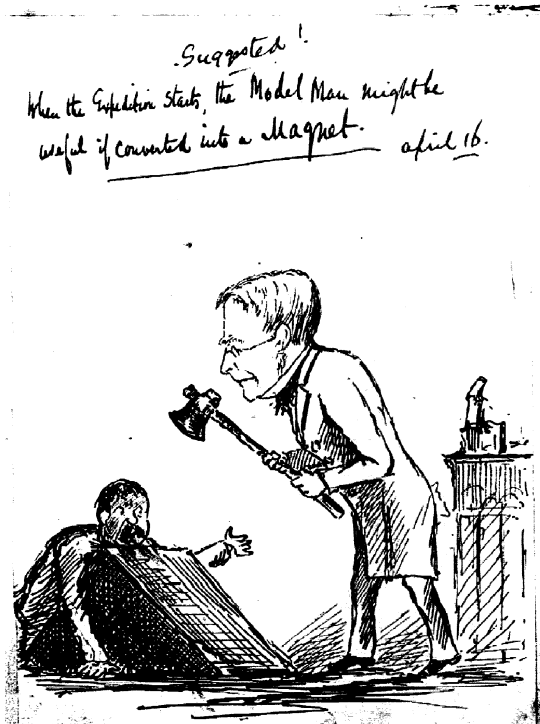 Suggested!
When the Expedition Starts, the Model Man might be
useful if converted into a Magnet.
april 16.